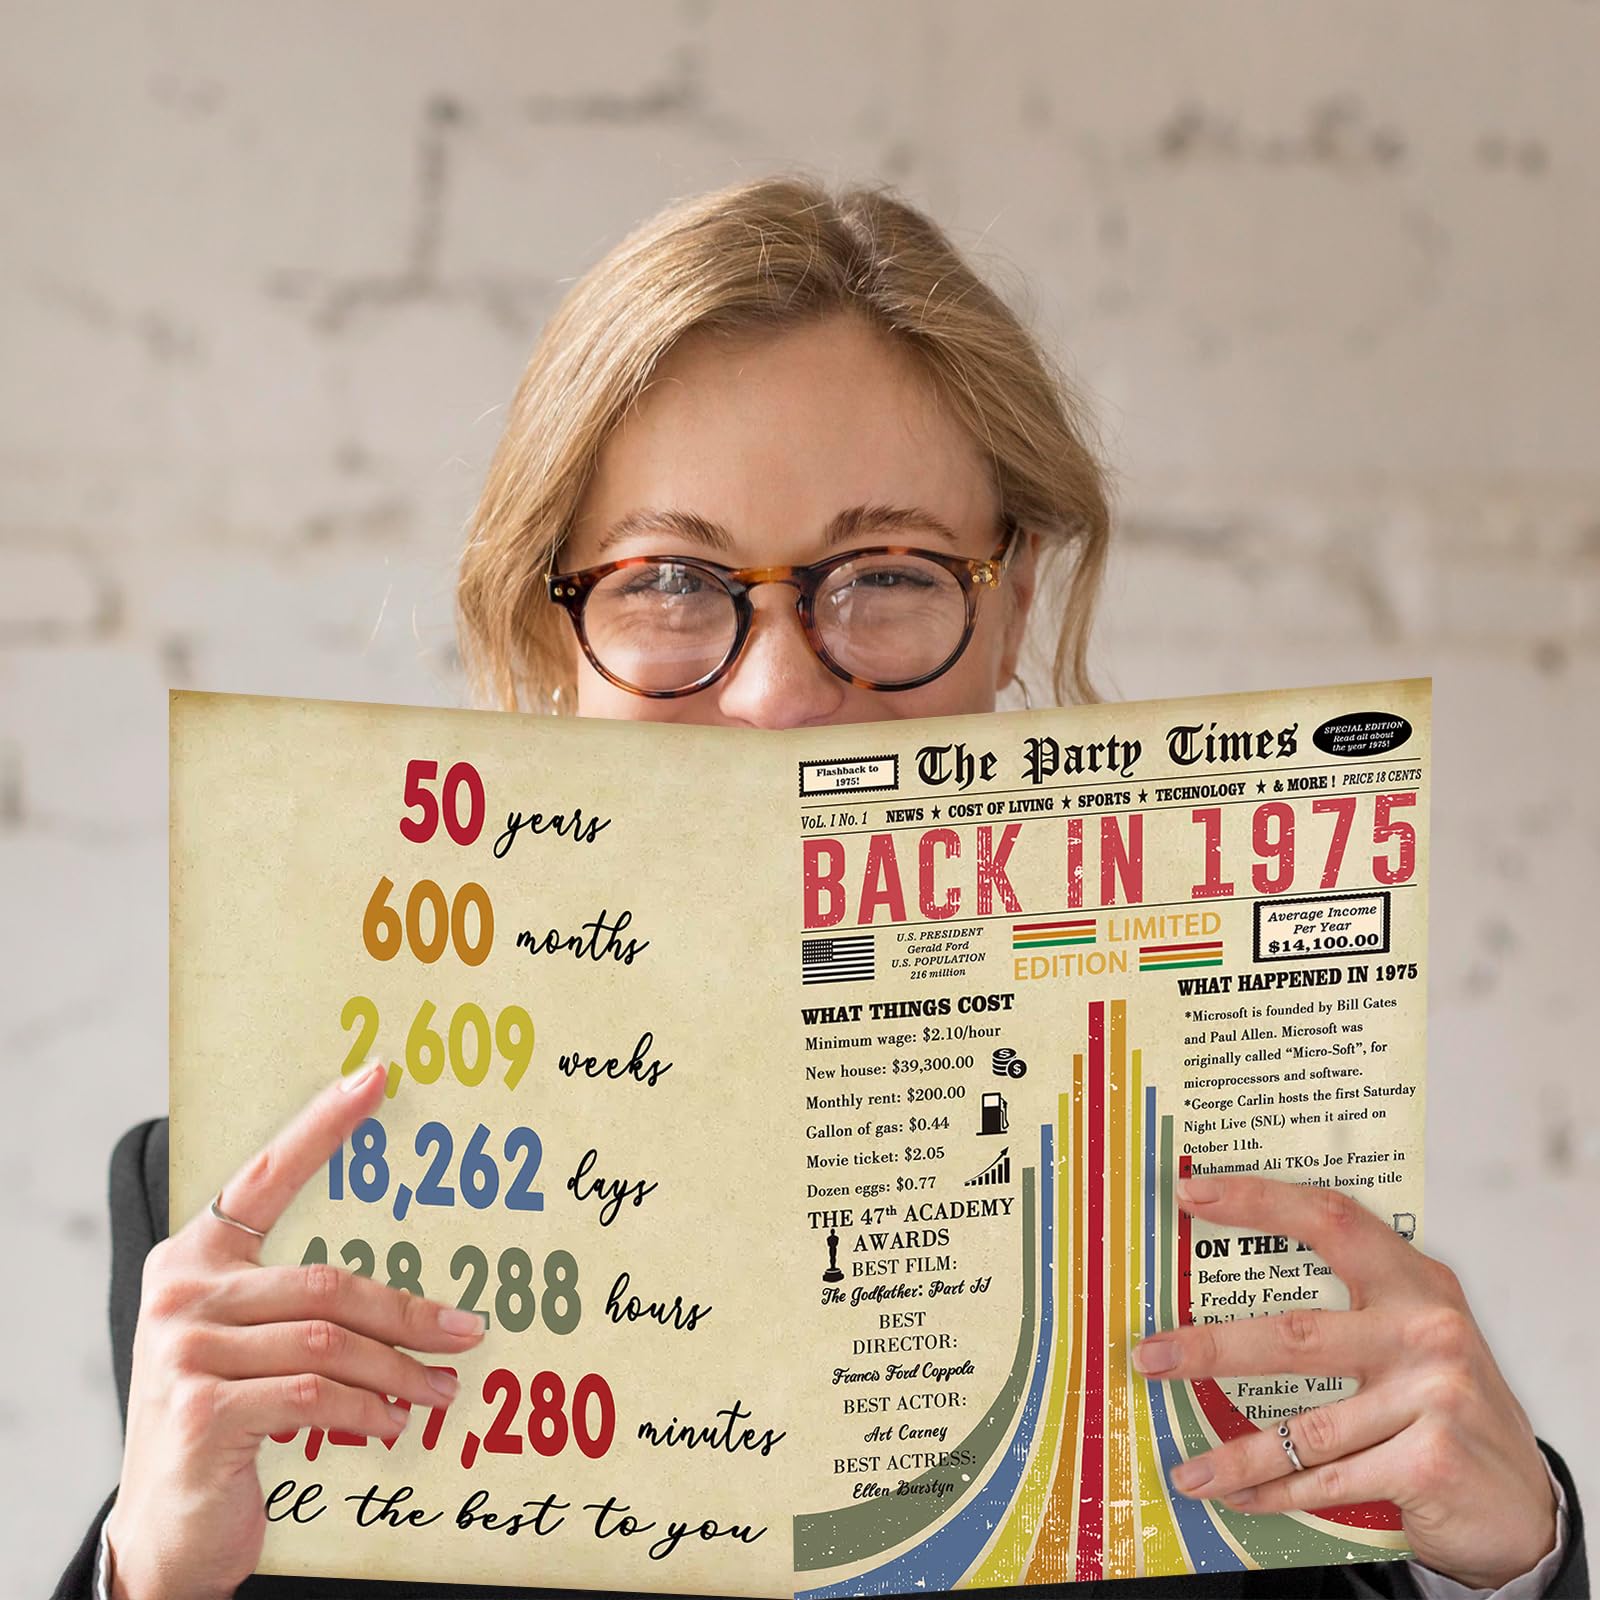 50 years
600 months
2,609 weeks
18,262 days
288 hours
,280 minutes
the best to you
Flashback to
1975!
The Party Times
SPECIAL EDITION
Read all about
the year 1975!
VoL. I No. 1 NEWS ★ COST OF LIVING ★ SPORTS ★ TECHNOLOGY ★ & MORE ! PRICE 18 CENTS
BACK IN 1975
U.S. PRESIDENT
Gerald Ford
U.S. POPULATION
216 million
LIMITED
EDITION
Average Income
Per Year
$14,100.00
WHAT THINGS COST
Minimum wage: $2.10/hour
New house: $39,300.00
Monthly rent: $200.00
Gallon of gas: $0.44
Movie ticket: $2.05
Dozen eggs: $0.77
THE 47th ACADEMY
AWARDS
BEST FILM:
The Godfather: Part II
BEST
DIRECTOR:
Francis Ford Coppola
BEST ACTOR:
Art Carney
BEST ACTRESS:
Ellen Burstyn
WHAT HAPPENED IN 1975
*Microsoft is founded by Bill Gates
and Paul Allen. Microsoft was
originally called “Micro-Soft”, for
microprocessors and software.
*George Carlin hosts the first Saturday
Night Live (SNL) when it aired on
October 11th.
*Muhammad Ali TKOs Joe Frazier in
boxing title
ON THE
" Before the Next
- Freddy Fender
- Frankie Valli